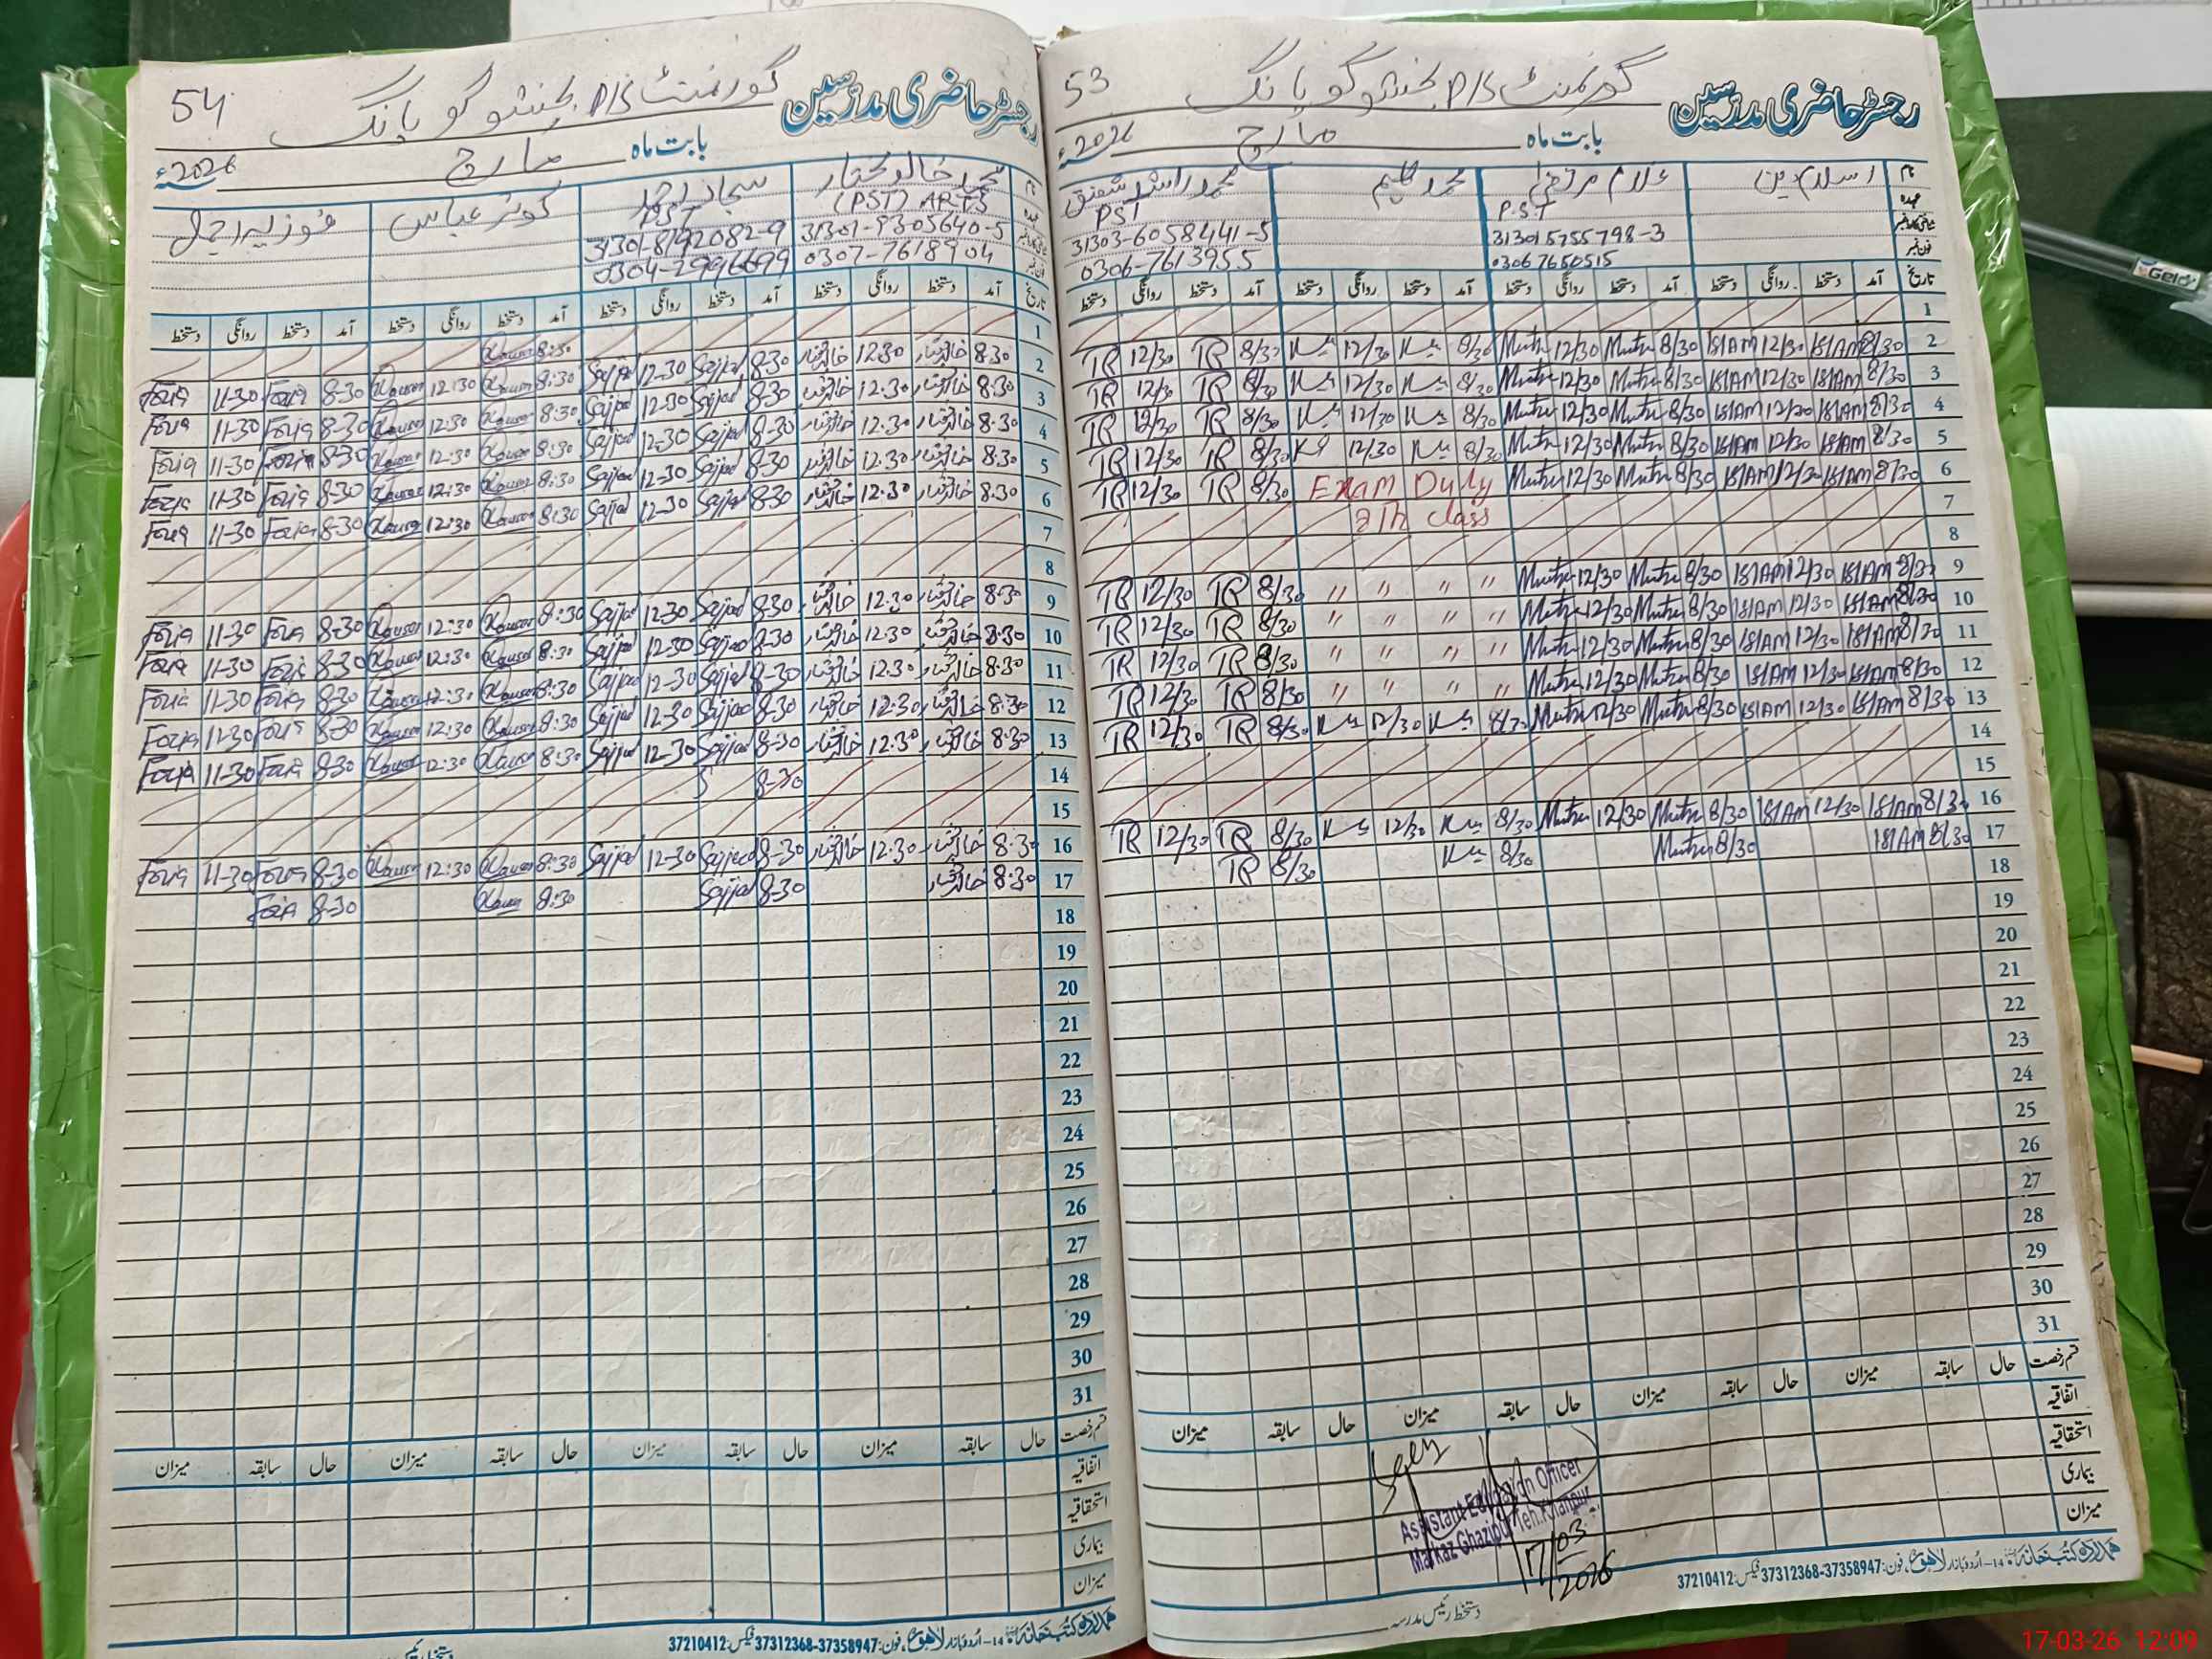 54
گورنمنٹ P/S بخشو گوپانگ
رجسٹر حاضری مدرسین
بابت ماہ مارچ 2026ء
نام محمد خالد مختار سجاد احمد کوثر عباس فوزیہ
عہدہ (PST) ARTS PST
31301-9305640-5 31301-8192082-9
فون نمبر 0307-7618904 0304-2996699
تاریخ آمد دستخط روانگی دستخط آمد دستخط روانگی دستخط آمد دستخط روانگی دستخط آمد دستخط روانگی دستخط
1 Kausar 8:30
2 8:30 خالد مختار 12:30 خالد مختار 8-30 Sajjad 12-30 Sajjad 8:30 Kausar 12:30 Kausar 8-30 Fozia 11-30 Fozia
3 8:30 خالد مختار 12:30 خالد مختار 8-30 Sajjad 12-30 Sajjad 8:30 Kausar 12:30 Kausar 8-30 Fozia 11-30 Fozia
4 8:30 خالد مختار 12:30 خالد مختار 8-30 Sajjad 12-30 Sajjad 8:30 Kausar 12:30 Kausar 8-30 Fozia 11-30 Fozia
5 8:30 خالد مختار 12:30 خالد مختار 8-30 Sajjad 12-30 Sajjad 8:30 Kausar 12:30 Kausar 8-30 Fozia 11-30 Fozia
6 8:30 خالد مختار 12:30 خالد مختار 8-30 Sajjad 12-30 Sajjad 8:30 Kausar 12:30 Kausar 8-30 Fozia 11-30 Fozia
7
8
9 8:30 خالد مختار 12:30 خالد مختار 8-30 Sajjad 12-30 Sajjad 8:30 Kausar 12:30 Kausar 8-30 Fozia 11-30 Fozia
10 8:30 خالد مختار 12:30 خالد مختار 8-30 Sajjad 12-30 Sajjad 8:30 Kausar 12:30 Kausar 8-30 Fozia 11-30 Fozia
11 8:30 خالد مختار 12:30 خالد مختار 8-30 Sajjad 12-30 Sajjad 8:30 Kausar 12:30 Kausar 8-30 Fozia 11-30 Fozia
12 8:30 خالد مختار 12:30 خالد مختار 8-30 Sajjad 12-30 Sajjad 8:30 Kausar 12:30 Kausar 8-30 Fozia 11-30 Fozia
13 8:30 خالد مختار 12:30 خالد مختار 8-30 Sajjad 12-30 Sajjad 8:30 Kausar 12:30 Kausar 8-30 Fozia 11-30 Fozia
14 8-30 S
15
16 8:30 خالد مختار 12:30 خالد مختار 8-30 Sajjad 12-30 Sajjad 8:30 Kausar 12:30 Kausar 8-30 Fozia 11-30 Fozia
17 8:30 خالد مختار 8-30 Sajjad 8:30 Kausar 8-30 Fozia
18
19
20
21
22
23
24
25
26
27
28
29
30
31
قسم رخصت حال سابقہ میزان حال سابقہ میزان حال سابقہ میزان حال سابقہ میزان
اتفاقیہ
استحقاقیہ
بیماری
میزان
ہمدرد کتب خانہ 14-اردو بازار لاہور، فون: 37358947-37312368 فیکس: 37210412
53
گورنمنٹ P/S بخشو گوپانگ
رجسٹر حاضری مدرسین
بابت ماہ مارچ 2026ء
نام اسلام دین غلام مرتضیٰ محمد کلیم محمد راشد شفیق
عہدہ P.S.T PST
313015755798-3 31303-6058441-5
فون نمبر 03067650515 0306-7613955
تاریخ آمد دستخط روانگی دستخط آمد دستخط روانگی دستخط آمد دستخط روانگی دستخط آمد دستخط روانگی دستخط
1
2 8/30 ISIAM 12/30 ISIAM 8/30 Mutza 12/30 Mutza 8/30 12/30 8/30 TR 12/30 TR
3 8/30 ISIAM 12/30 ISIAM 8/30 Mutza 12/30 Mutza 8/30 12/30 8/30 TR 12/30 TR
4 8/30 ISIAM 12/30 ISIAM 8/30 Mutza 12/30 Mutza 8/30 12/30 8/30 TR 12/30 TR
5 8/30 ISIAM 12/30 ISIAM 8/30 Mutza 12/30 Mutza 8/30 12/30 8/30 TR 12/30 TR
6 8/30 ISIAM 12/30 ISIAM 8/30 Mutza 12/30 Mutza Exam Duty 8/30 TR 12/30 TR
7 8Th class
8
9 8/30 ISIAM 12/30 ISIAM 8/30 Mutza 12/30 Mutza " " " " 8/30 TR 12/30 TR
10 8/30 ISIAM 12/30 ISIAM 8/30 Mutza 12/30 Mutza " " " " 8/30 TR 12/30 TR
11 8/30 ISIAM 12/30 ISIAM 8/30 Mutza 12/30 Mutza " " " " 8/30 TR 12/30 TR
12 8/30 ISIAM 12/30 ISIAM 8/30 Mutza 12/30 Mutza " " " " 8/30 TR 12/30 TR
13 8/30 ISIAM 12/30 ISIAM 8/30 Mutza 12/30 Mutza 8/30 12/30 8/30 TR 12/30 TR
14
15
16 8/30 ISIAM 12/30 ISIAM 8/30 Mutza 12/30 Mutza 8/30 12/30 8/30 TR 12/30 TR
17 8/30 ISIAM 8/30 Mutza 8/30 8/30 TR
18
19
20
21
22
23
24
25
26
27
28
29
30
31
قسم رخصت حال سابقہ میزان حال سابقہ میزان حال سابقہ میزان حال سابقہ میزان
اتفاقیہ
استحقاقیہ
بیماری
میزان
Assistant Education Officer
Markaz Ghazipur Teh. Khanpur
17/03/2026
دستخط رئیس مدرسہ
ہمدرد کتب خانہ 14-اردو بازار لاہور، فون: 37358947-37312368 فیکس: 37210412
Geld
17-03-26 12:09